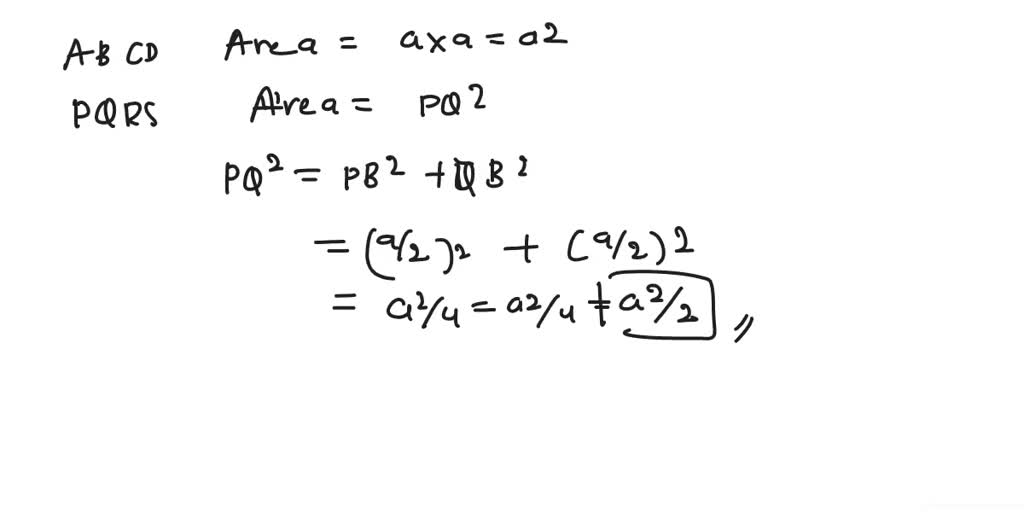 ABCD Area = a×a = a2
PQRS Area = PQ²
PQ² = PB² + QB²
= (a/2)² + (a/2)2
= a²/4 = a2/4 ‡ a²/2 //